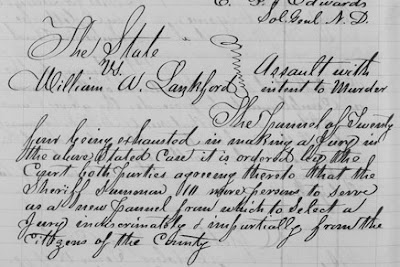 Edwards
Sol. Genl. N. D.
The State
vs.
William W. Lankford
Assault with
intent to Murder
The Pannel of Twenty
four being exhausted in making a Jury in
the above Stated Case it is ordered by the
Court both parties agreeing thereto that the
Sheriff Summon more persons to serve
as a new Pannel from which to Select a
Jury indiscriminately & impartially from the
Citizens of the County